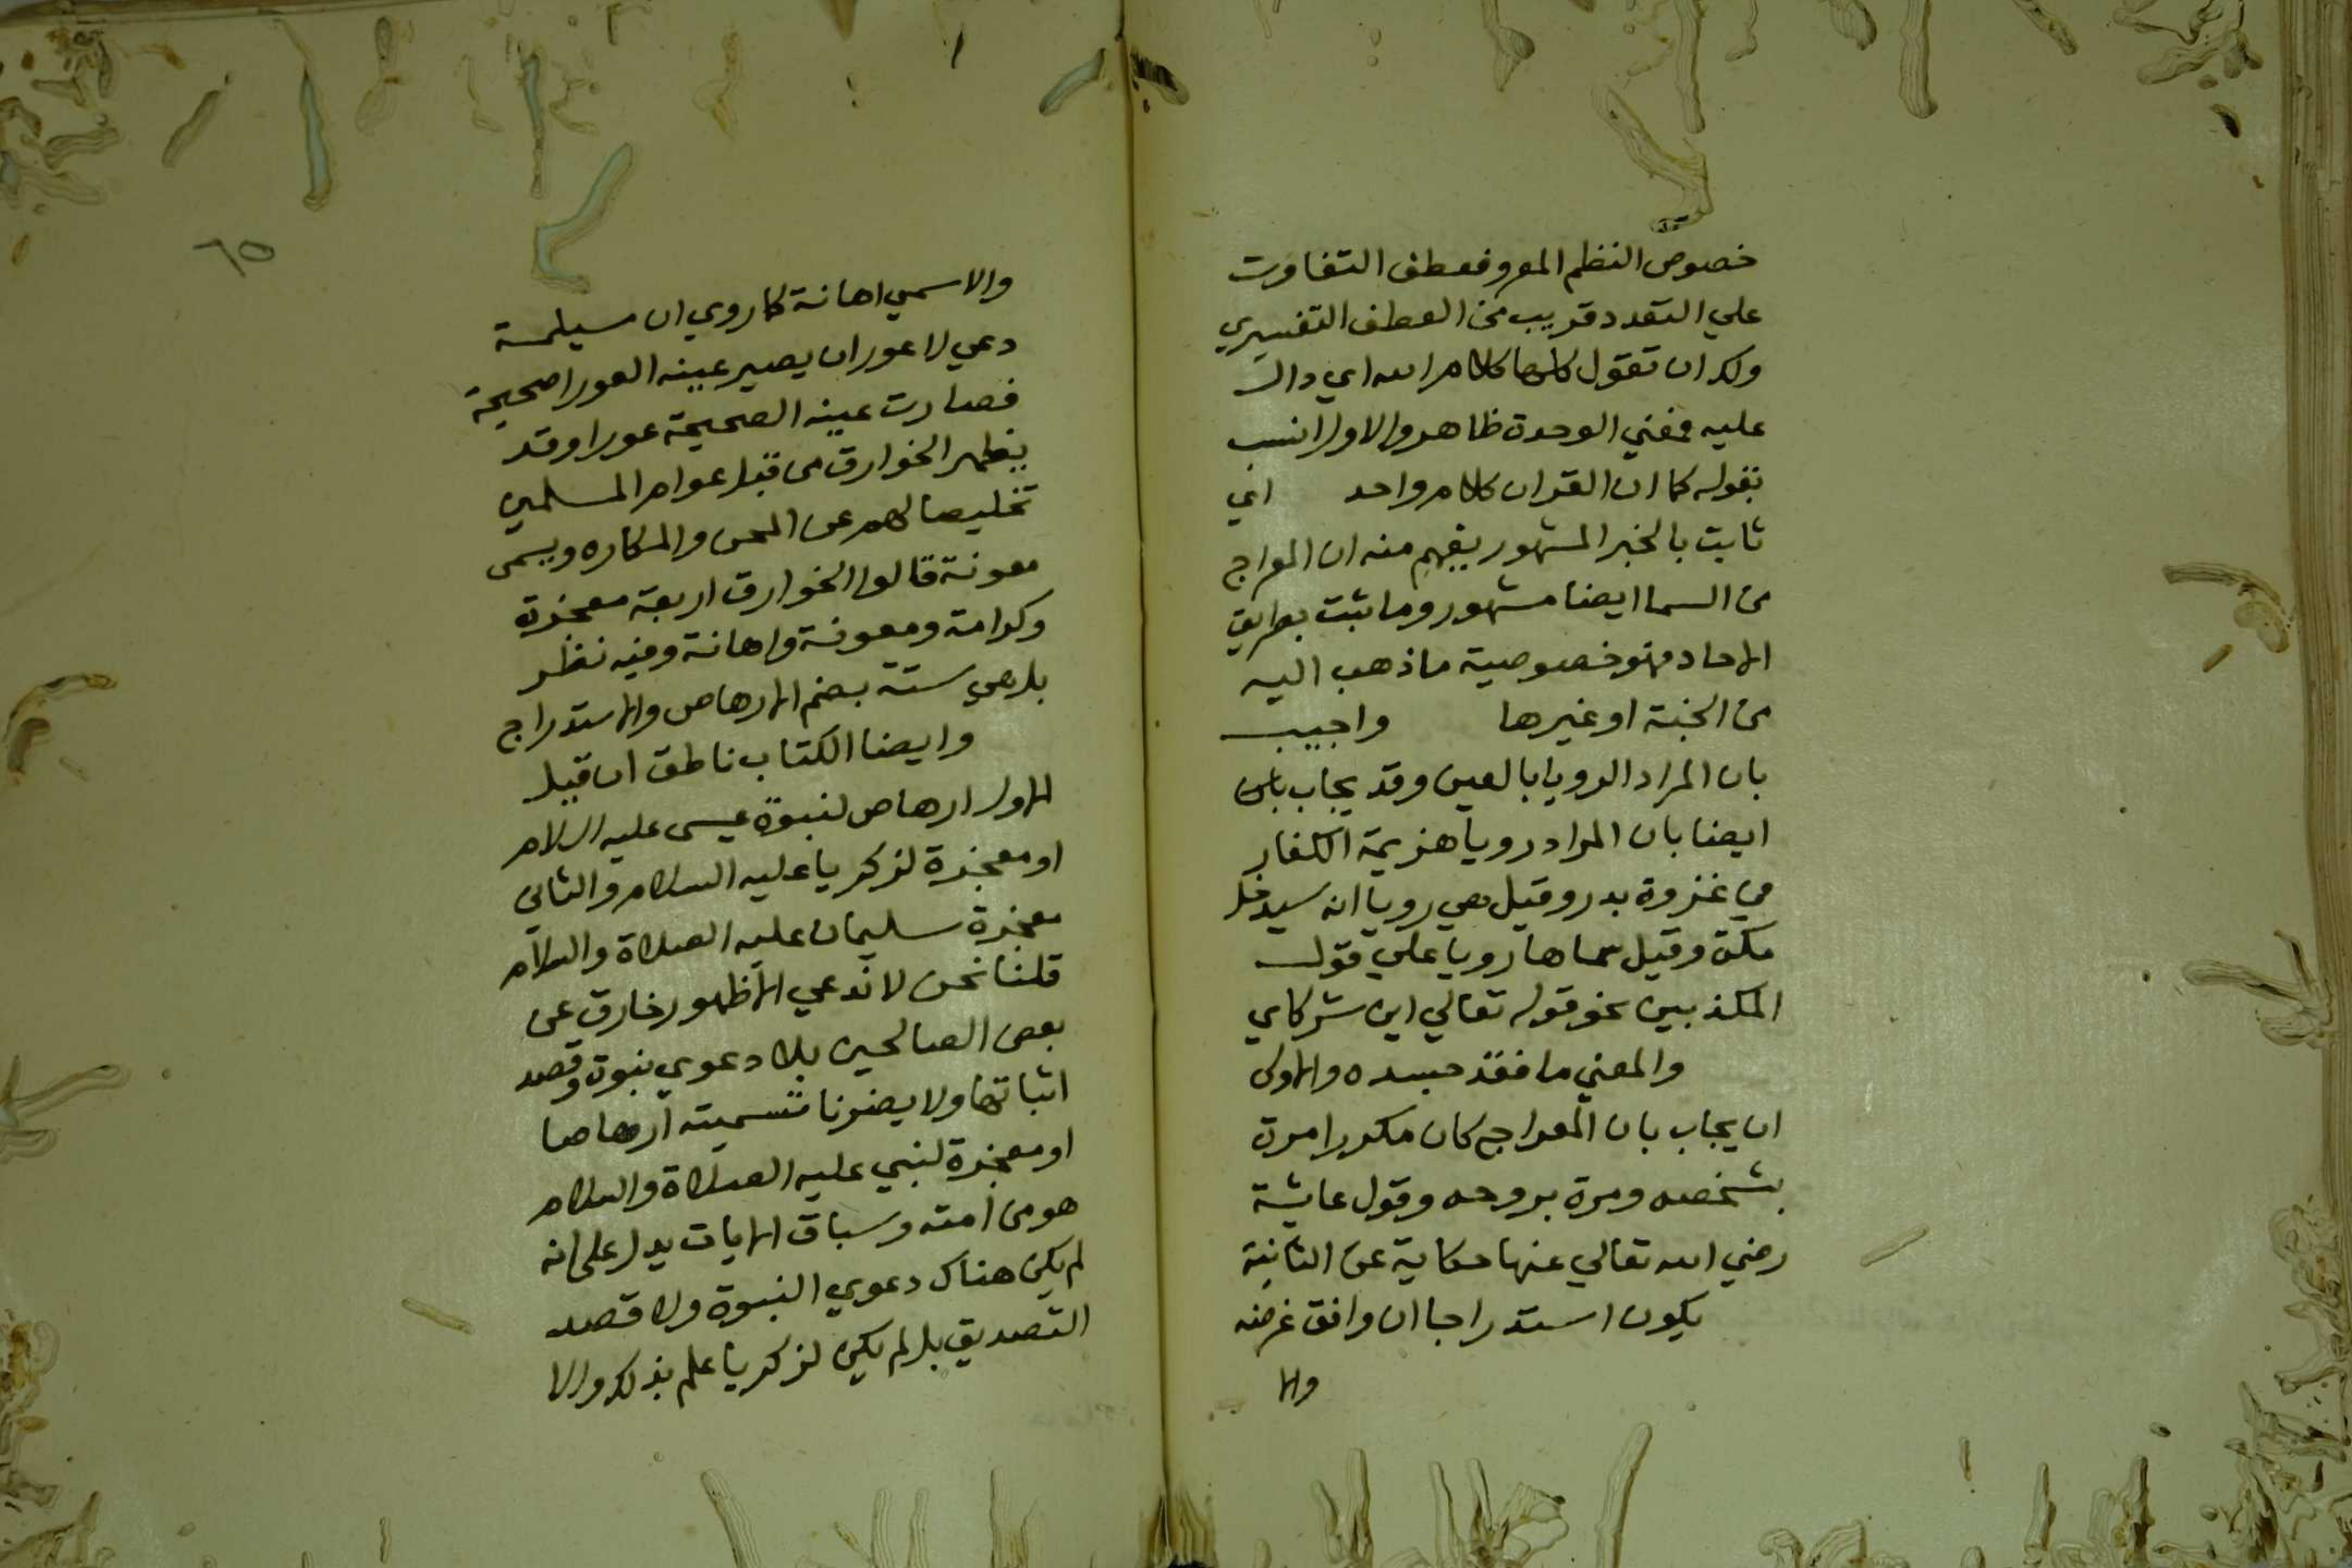 خصوص النظم المعروف فعطف التفاوت
علي التعدد قريب من العطف التفسيري
ولك ان تقول كلها كلام الله اي دال
عليه فمعني الوحدة ظاهر والاول انسب
بقوله كما ان القران كلام واحد اي
ثابت بالخبر المشهور يفهم منه ان المعراج
من السما ايضا مشهور وما ثبت بطريق
الاحاد فهو خصوصية ما ذهب اليه
من الجنة او غيرها واجيب
بان المراد الرويا بالعين وقد يجاب
ايضا بان المراد رويا هزيمة الكفار
في غزوة بدر وقيل هي رويا انه سيدخل
مكة وقيل سماها رويا علي قول
المكذبين نحو قوله تعالي اين شركاي
والمعني ما فقد جسده والاولى
ان يجاب بان المعراج كان مكررا مرة
بشخصه ومرة بروحه وقول عايشة
رضي الله تعالي عنها حكاية عن الثانية
يكون استدراجا ان وافق غرضه
والا
٦٥
والا سمي اهانة كما روي ان مسيلمة
دعي لاعور ان يصير عينه العورا صحيحة
فصارت عينه الصحيحة عورا وقد
يظهر الخوارق من قبل عوام المسلمين
تخليصا لهم عن المحن والمكاره ويسمى
معونة قالوا الخوارق اربعة معجزة
وكرامة ومعونة واهانة وفيه نظر
بل هي ستة بضم الارهاص والاستدراج
وايضا الكتاب ناطق ان قيل
الاول ارهاص لنبوة عيسى عليه السلام
او معجزة لزكريا عليه السلام والثاني
معجزة سليمان عليه الصلاة والسلام
قلنا نحن لا ندعي الا ظهور خارق عن
بعض الصالحين بلا دعوي نبوة وقصد
اثباتها ولا يضرنا تسميته ارهاصا
او معجزة لنبي عليه الصلاة والسلام
هو من امته وسباق الايات يدل على انه
لم يكن هناك دعوي النبوة ولا قصد
التصديق بل لم يكن لزكريا علم بذلك والا